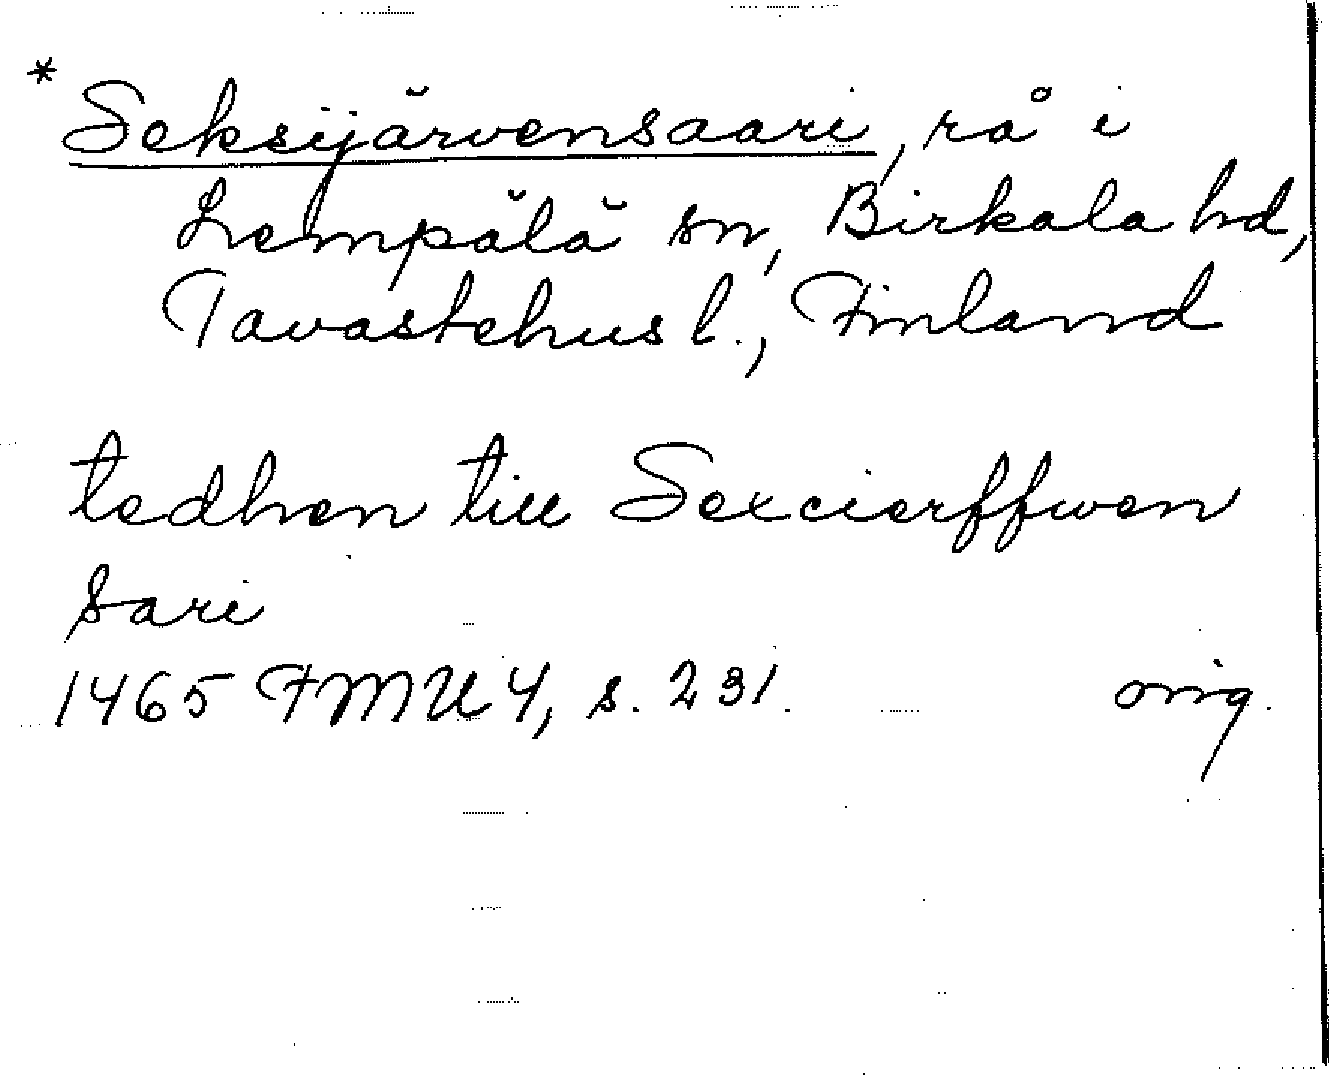 * Seksijärvensaari, rå i
Lempälä sn, Birkala hd,
Tavastehus l., Finland
tedhen till Sexcierffwen
sari
1465 FMU 4, s. 231. orig.